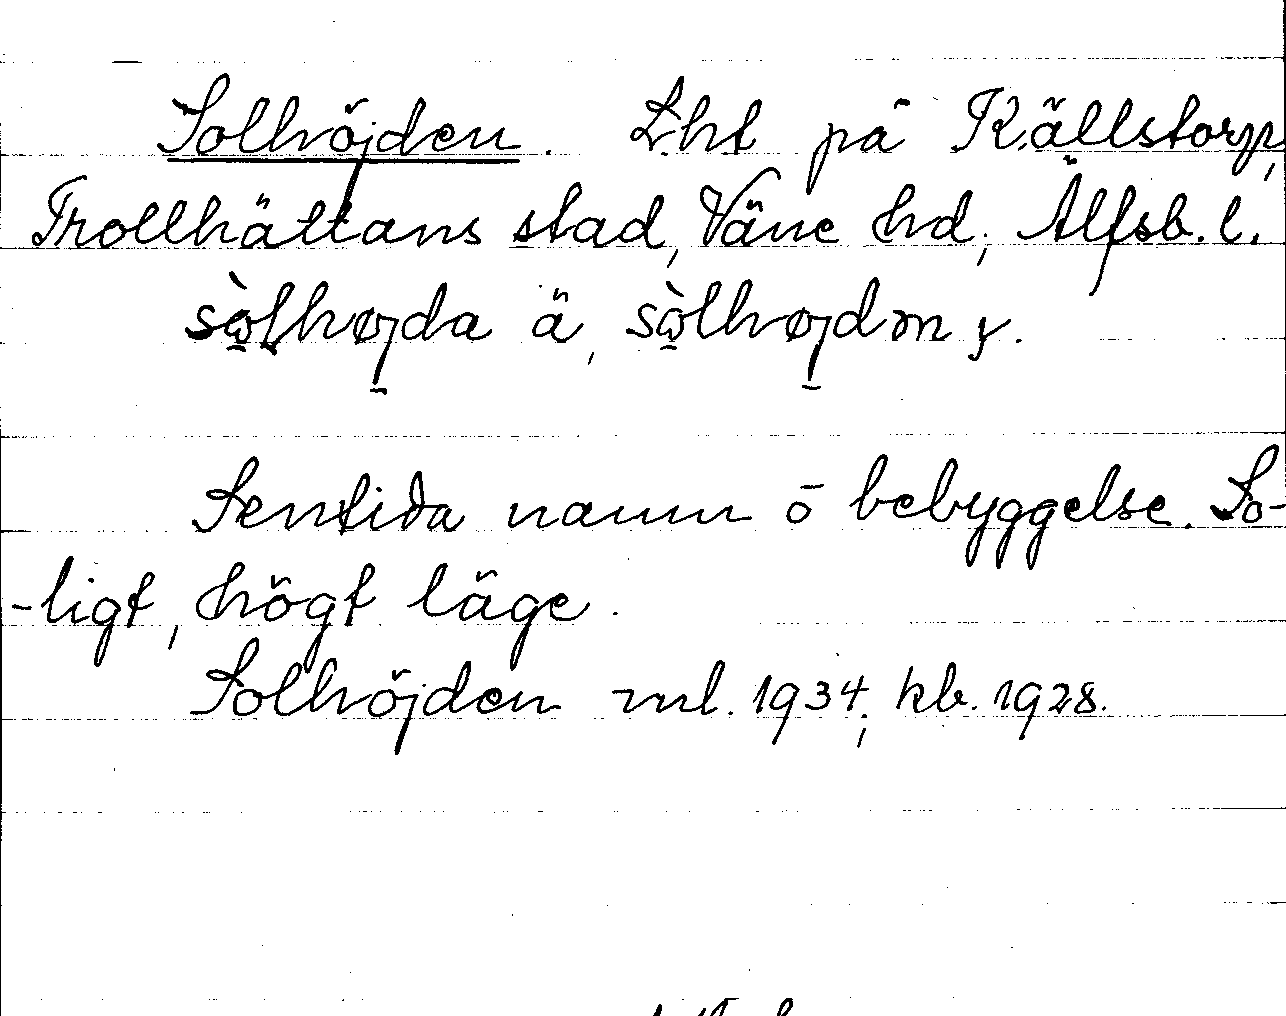 Solhöjden. Lht på Källstorp,
Trollhättans stad, Väne hd, Älfsb. l.
sòlhøjda ä, sòlhøjdən y.
Sentida namn o bebyggelse. So-
-ligt, högt läge.
Solhöjden ml. 1934; kb. 1928.